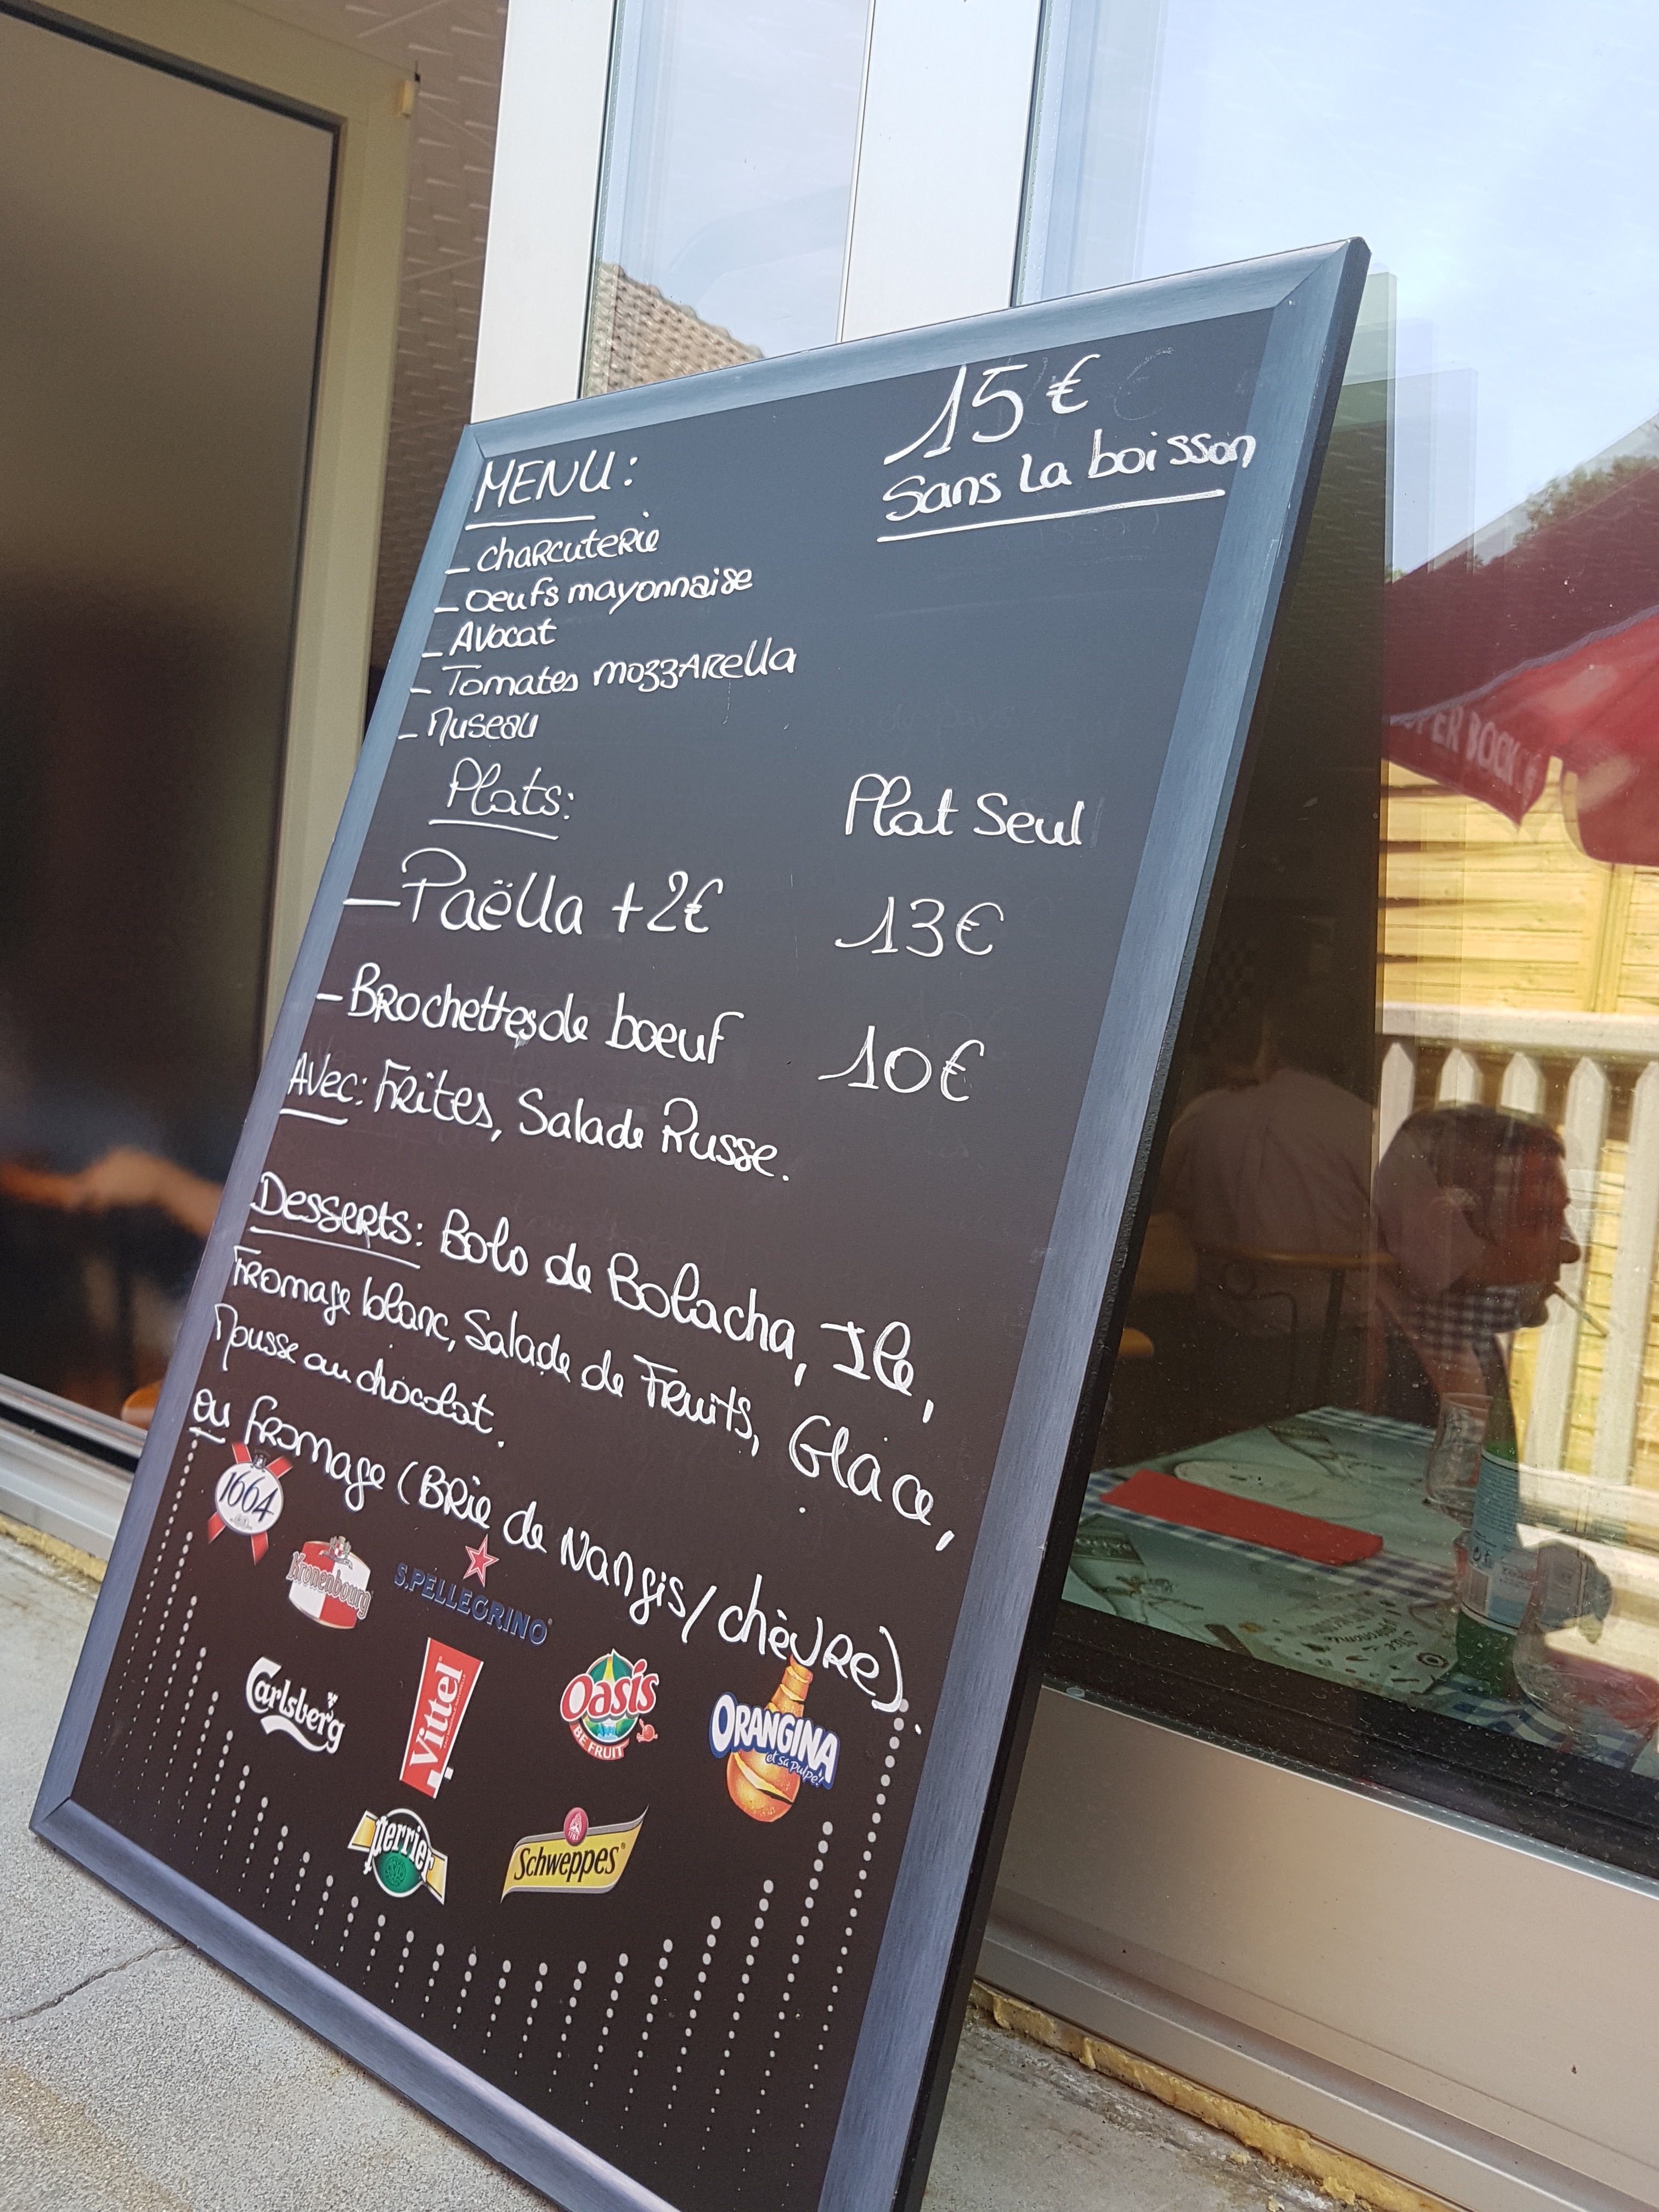 15€
Sans la boisson
MENU:
- Charcuterie
- Oeufs mayonnaise
- Avocat
- Tomates mozzarella
- Museau
Plats:
Plat Seul
- Paëlla +2€ 13€
- Brochettes de boeuf 10€
Avec: Frites, Salade Russe.
Desserts: Bolo de Bolacha, Ile,
Fromage blanc, Salade de Fruits, Glace,
Mousse au chocolat.
ou fromage (Brie de Nangis/chèvre).
1664
Kronenbourg
S.PELLEGRINO
Carlsberg
Vittel
Oasis
BE FRUIT
ORANGINA
et sa pulpe!
perrier
Schweppes
PER BOCK